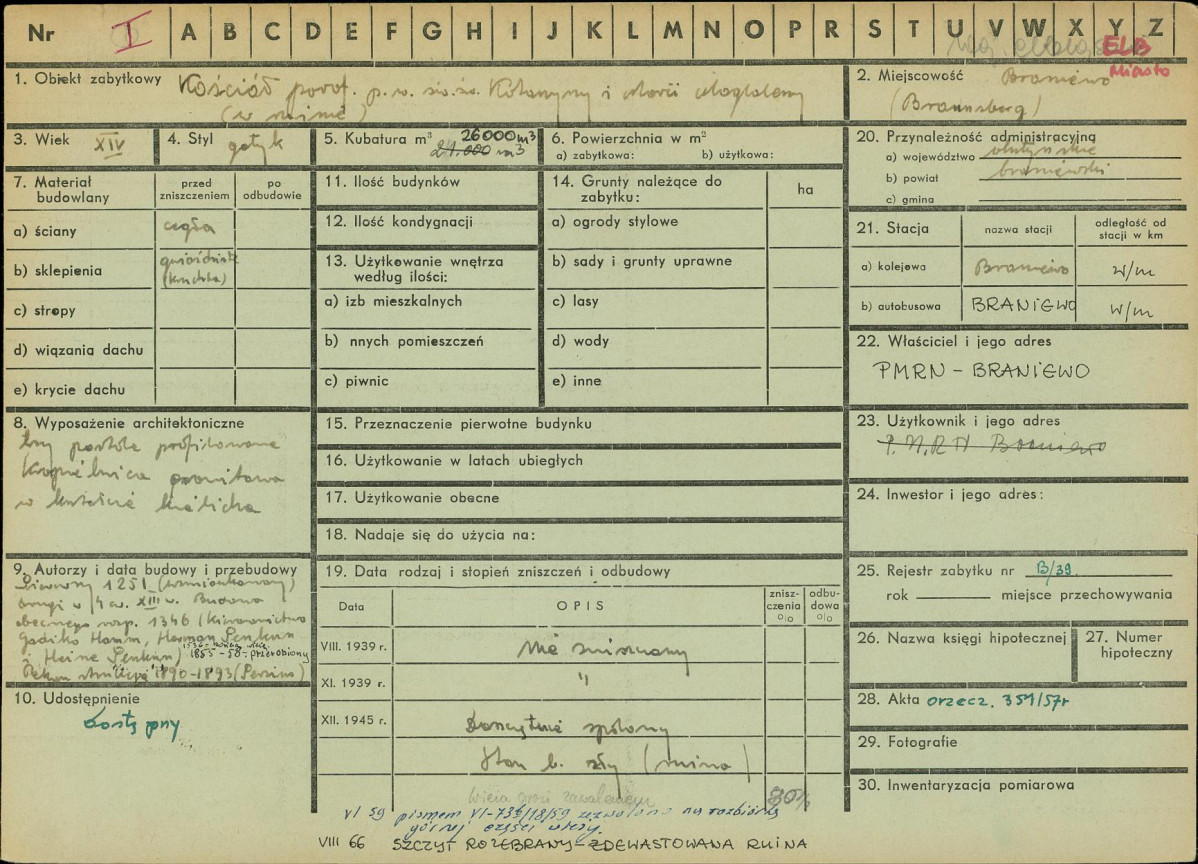 Nr I A B C D E F G H I J K L M N O P R S T U V W X Y Z
ELB
Miasto
1. Obiekt zabytkowy Kościół paraf. p.w. św. św. Katarzyny i Marii Magdaleny
(w ruinie)
2. Miejscowość Braniewo
(Braunsberg)
3. Wiek XIV
4. Styl gotyk
5. Kubatura m³ 26000 m³
21.000 m³
6. Powierzchnia w m²
a) zabytkowa: b) użytkowa:
20. Przynależność administracyjną
a) województwo olsztyńskie
b) powiat braniewski
c) gmina
7. Materiał budowlany
przed zniszczeniem
po odbudowie
a) ściany cegła
b) sklepienia gwiaździste
(kruchta)
c) stropy
d) wiązania dachu
e) krycie dachu
11. Ilość budynków
12. Ilość kondygnacji
13. Użytkowanie wnętrza
według ilości:
a) izb mieszkalnych
b) nnych pomieszczeń
c) piwnic
14. Grunty należące do
zabytku:
ha
a) ogrody stylowe
b) sady i grunty uprawne
c) lasy
d) wody
e) inne
21. Stacja
nazwa stacji
odległość od
stacji w km
a) kolejowa Braniewo w/m
b) autobusowa BRANIEWO w/m
22. Właściciel i jego adres
PMRN - BRANIEWO
8. Wyposażenie architektoniczne
trzy portale profilowane
Kropielnica granitowa
w kształcie kielicha
15. Przeznaczenie pierwotne budynku
16. Użytkowanie w latach ubiegłych
17. Użytkowanie obecne
18. Nadaje się do użycia na:
23. Użytkownik i jego adres
P.M.R.N Braniewo
24. Inwestor i jego adres:
9. Autorzy i data budowy i przebudowy
Pierwszy 1251 (wzmiankowany)
drugi w 4 ćw. XIII w. Budowa
obecnego rozp. 1346 (kierownictwo
Godiko Hamm, Herman Penkun
i Heine Penkun) 1536 - koniec wieży
1855-58 - przerobiony
Rekonstrukcja 1890-1893 (Persius)
10. Udostępnienie
dostępny
19. Data rodzaj i stopień zniszczeń i odbudowy
Data
OPIS
znisz-
czenia
o/o
odbu-
dowa
o/o
VIII. 1939 r. Nie zniszczony
XI. 1939 r. "
XII. 1945 r. Doszczętnie spalony
Stan b. zły (ruina)
Wieża grozi zawaleniem 80%
VI 59 pismem VI-732/18/59 zezwolono na rozbiórkę
górnej części wieży.
VIII 66 SZCZYT ROZEBRANY - ZDEWASTOWANA RUINA
25. Rejestr zabytku nr B/39
rok miejsce przechowywania
26. Nazwa księgi hipotecznej
27. Numer
hipoteczny
28. Akta orzecz. 351/57r
29. Fotografie
30. Inwentaryzacja pomiarowa